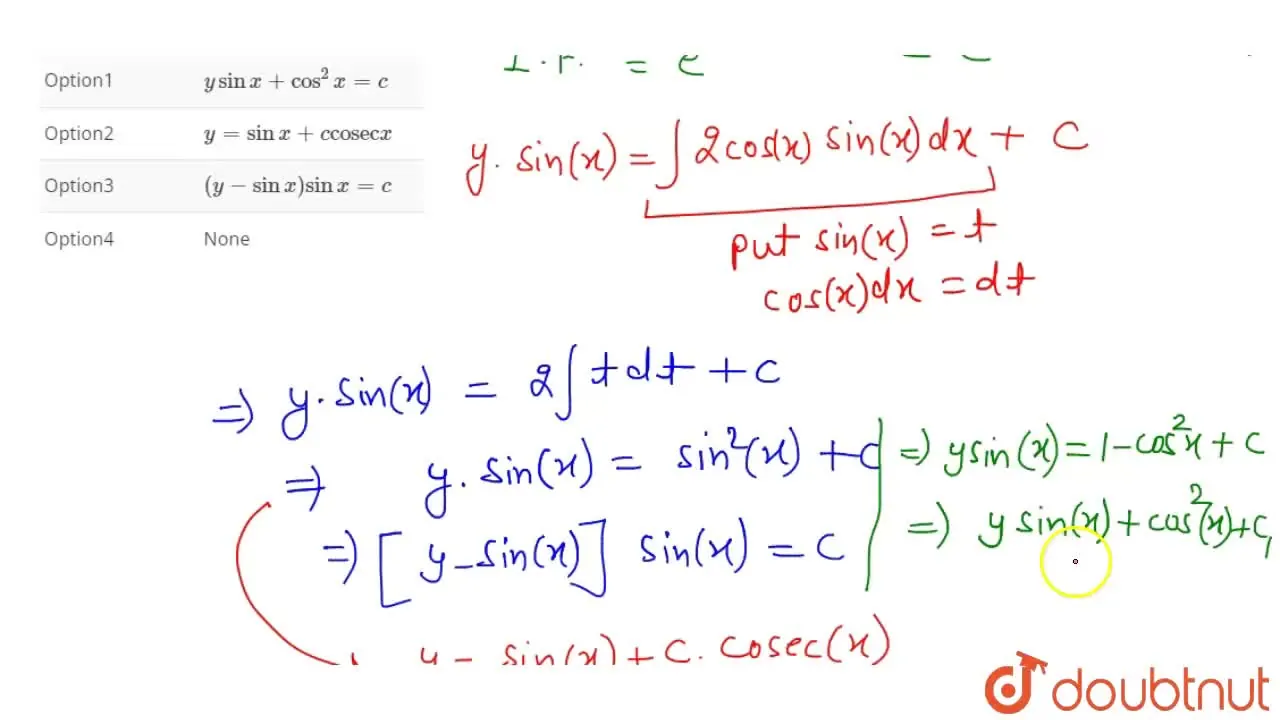 Option1 y sin x + cos² x = c
Option2 y = sin x + ccosecx
Option3 (y − sin x)sin x = c
Option4 None
I.F. = e = e
y. sin(x) = ∫ 2cos(x) sin(x)dx + C
put sin(x) = t
cos(x)dx = dt
=> y. sin(x) = 2∫ t dt + C
=> y. sin(x) = sin²(x) + C
=> [y - sin(x)] sin(x) = C
y = sin(x) + C. cosec(x)
=> y sin(x) = 1 - cos²x + C
=> y sin(x) + cos²(x) + C₁
doubtnut